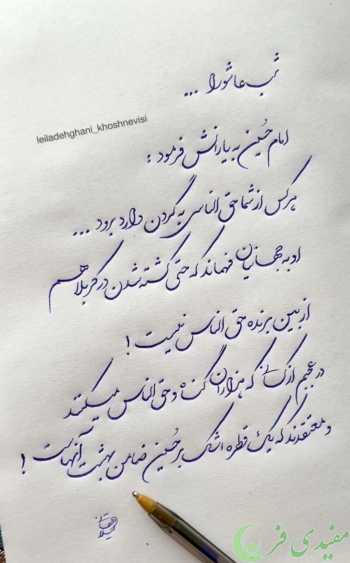 شب عاشورا ...
leiladehghani_khoshnevisi
امام حُسین به یارانش فرمود :
هر کس از شما حق الناسی به گردن دارد برود ...
او به جهانیان فهماند که حتی کشته شدن در کربلا هم
از بین برنده حق الناس نیست !
در عجبم از کسانی که هزاران گناه و حق الناس میکنند
و معتقدند که یک قطره اشک بر حُسین ضامن بهشت آنهاست !
مفیدی فر